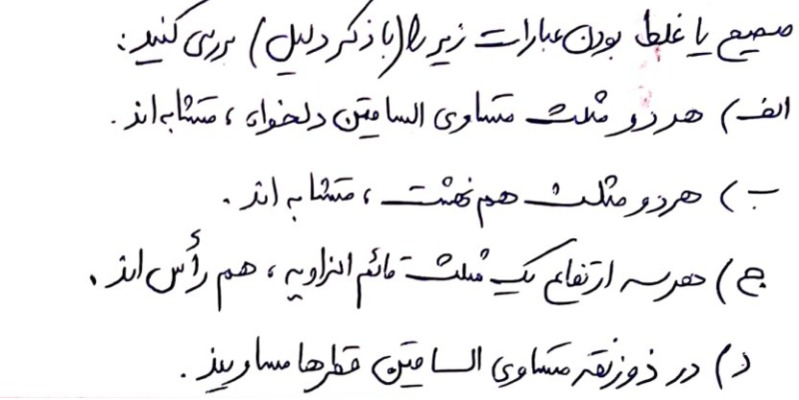 صحیح یا غلط بودن عبارات زیر را (با ذکر دلیل) بررسی کنید:
الف) هر دو مثلث متساوی الساقین دلخواه، متشابه‌اند.
ب) هر دو مثلث هم نهشت، متشابه‌اند.
ج) هر سه ارتفاع یک مثلث قائم الزاویه، هم رأس‌اند.
د) در ذوزنقه متساوی الساقین قطرها مساویند.